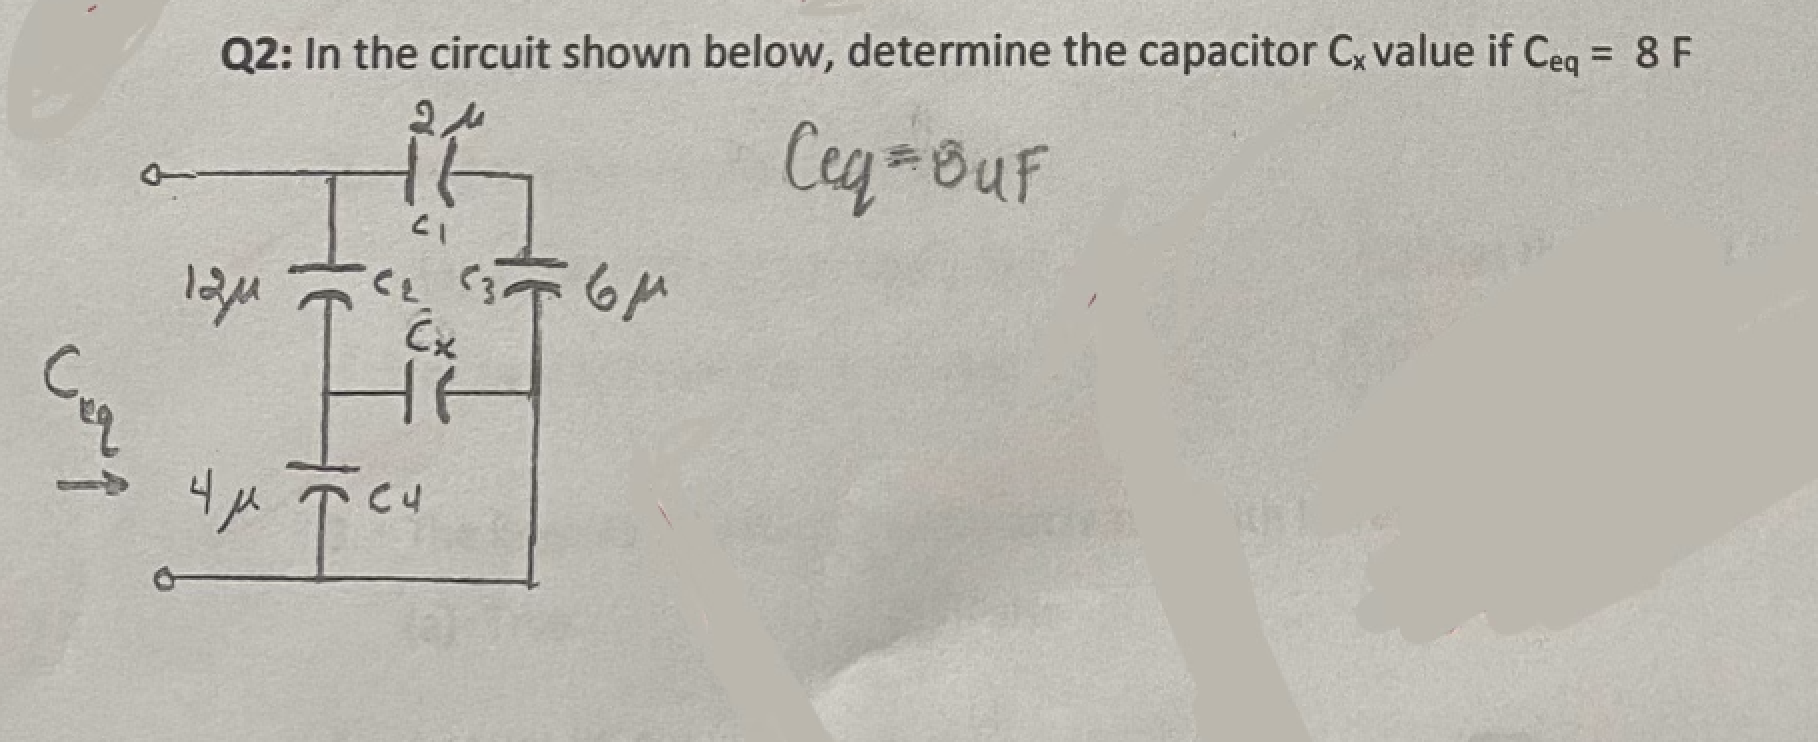 Q2: In the circuit shown below, determine the capacitor Cx value if Ceq = 8 F
2 μ
Ceq = 8uF
C1
12μ
C2
C3
6 μ
Cx
Ceq
4 μ
C4